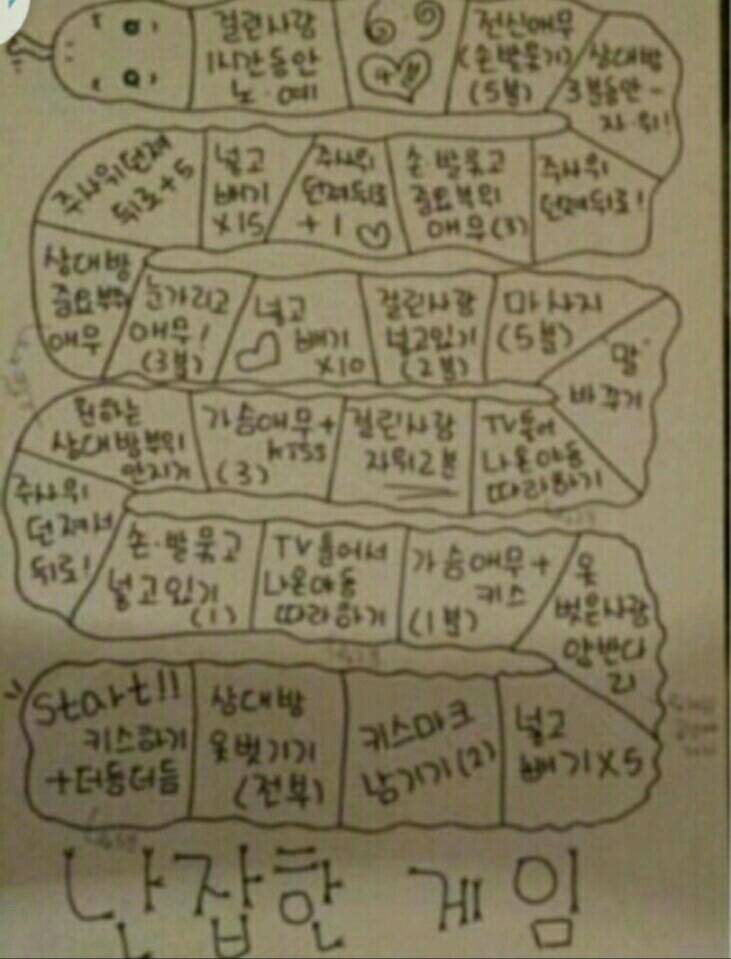 걸린사람
1시간동안
노·예
69
전신애무
(손발묶기)
(5분)
상대방
3분동안
자·위!
주사위던져
뒤로+5
넣고
빼기
x15
주사위
던져뒤로
+1
손·발묶고
중요부위
애무(3)
주사위
던져뒤로!
상대방
중요부위
애무
눈가리고
애무!
(3분)
넣고
빼기
x10
걸린사람
넣고있기
(2분)
마사지
(5분)
"말"
바꾸기
원하는
상대방부위
만지기
가슴애무+
kiss
(3)
걸린사람
자위2분
TV틀어
나온야동
따라하기
주사위
던져서
뒤로!
손·발묶고
넣고있기
(1)
TV틀어서
나온야동
따라하기
가슴애무+
키스
(1분)
옷
벗은사람
Start!!
키스하기
+더듬더듬
상대방
옷벗기기
(전부)
키스마크
남기기(2)
넣고
빼기x5
난잡한 게임